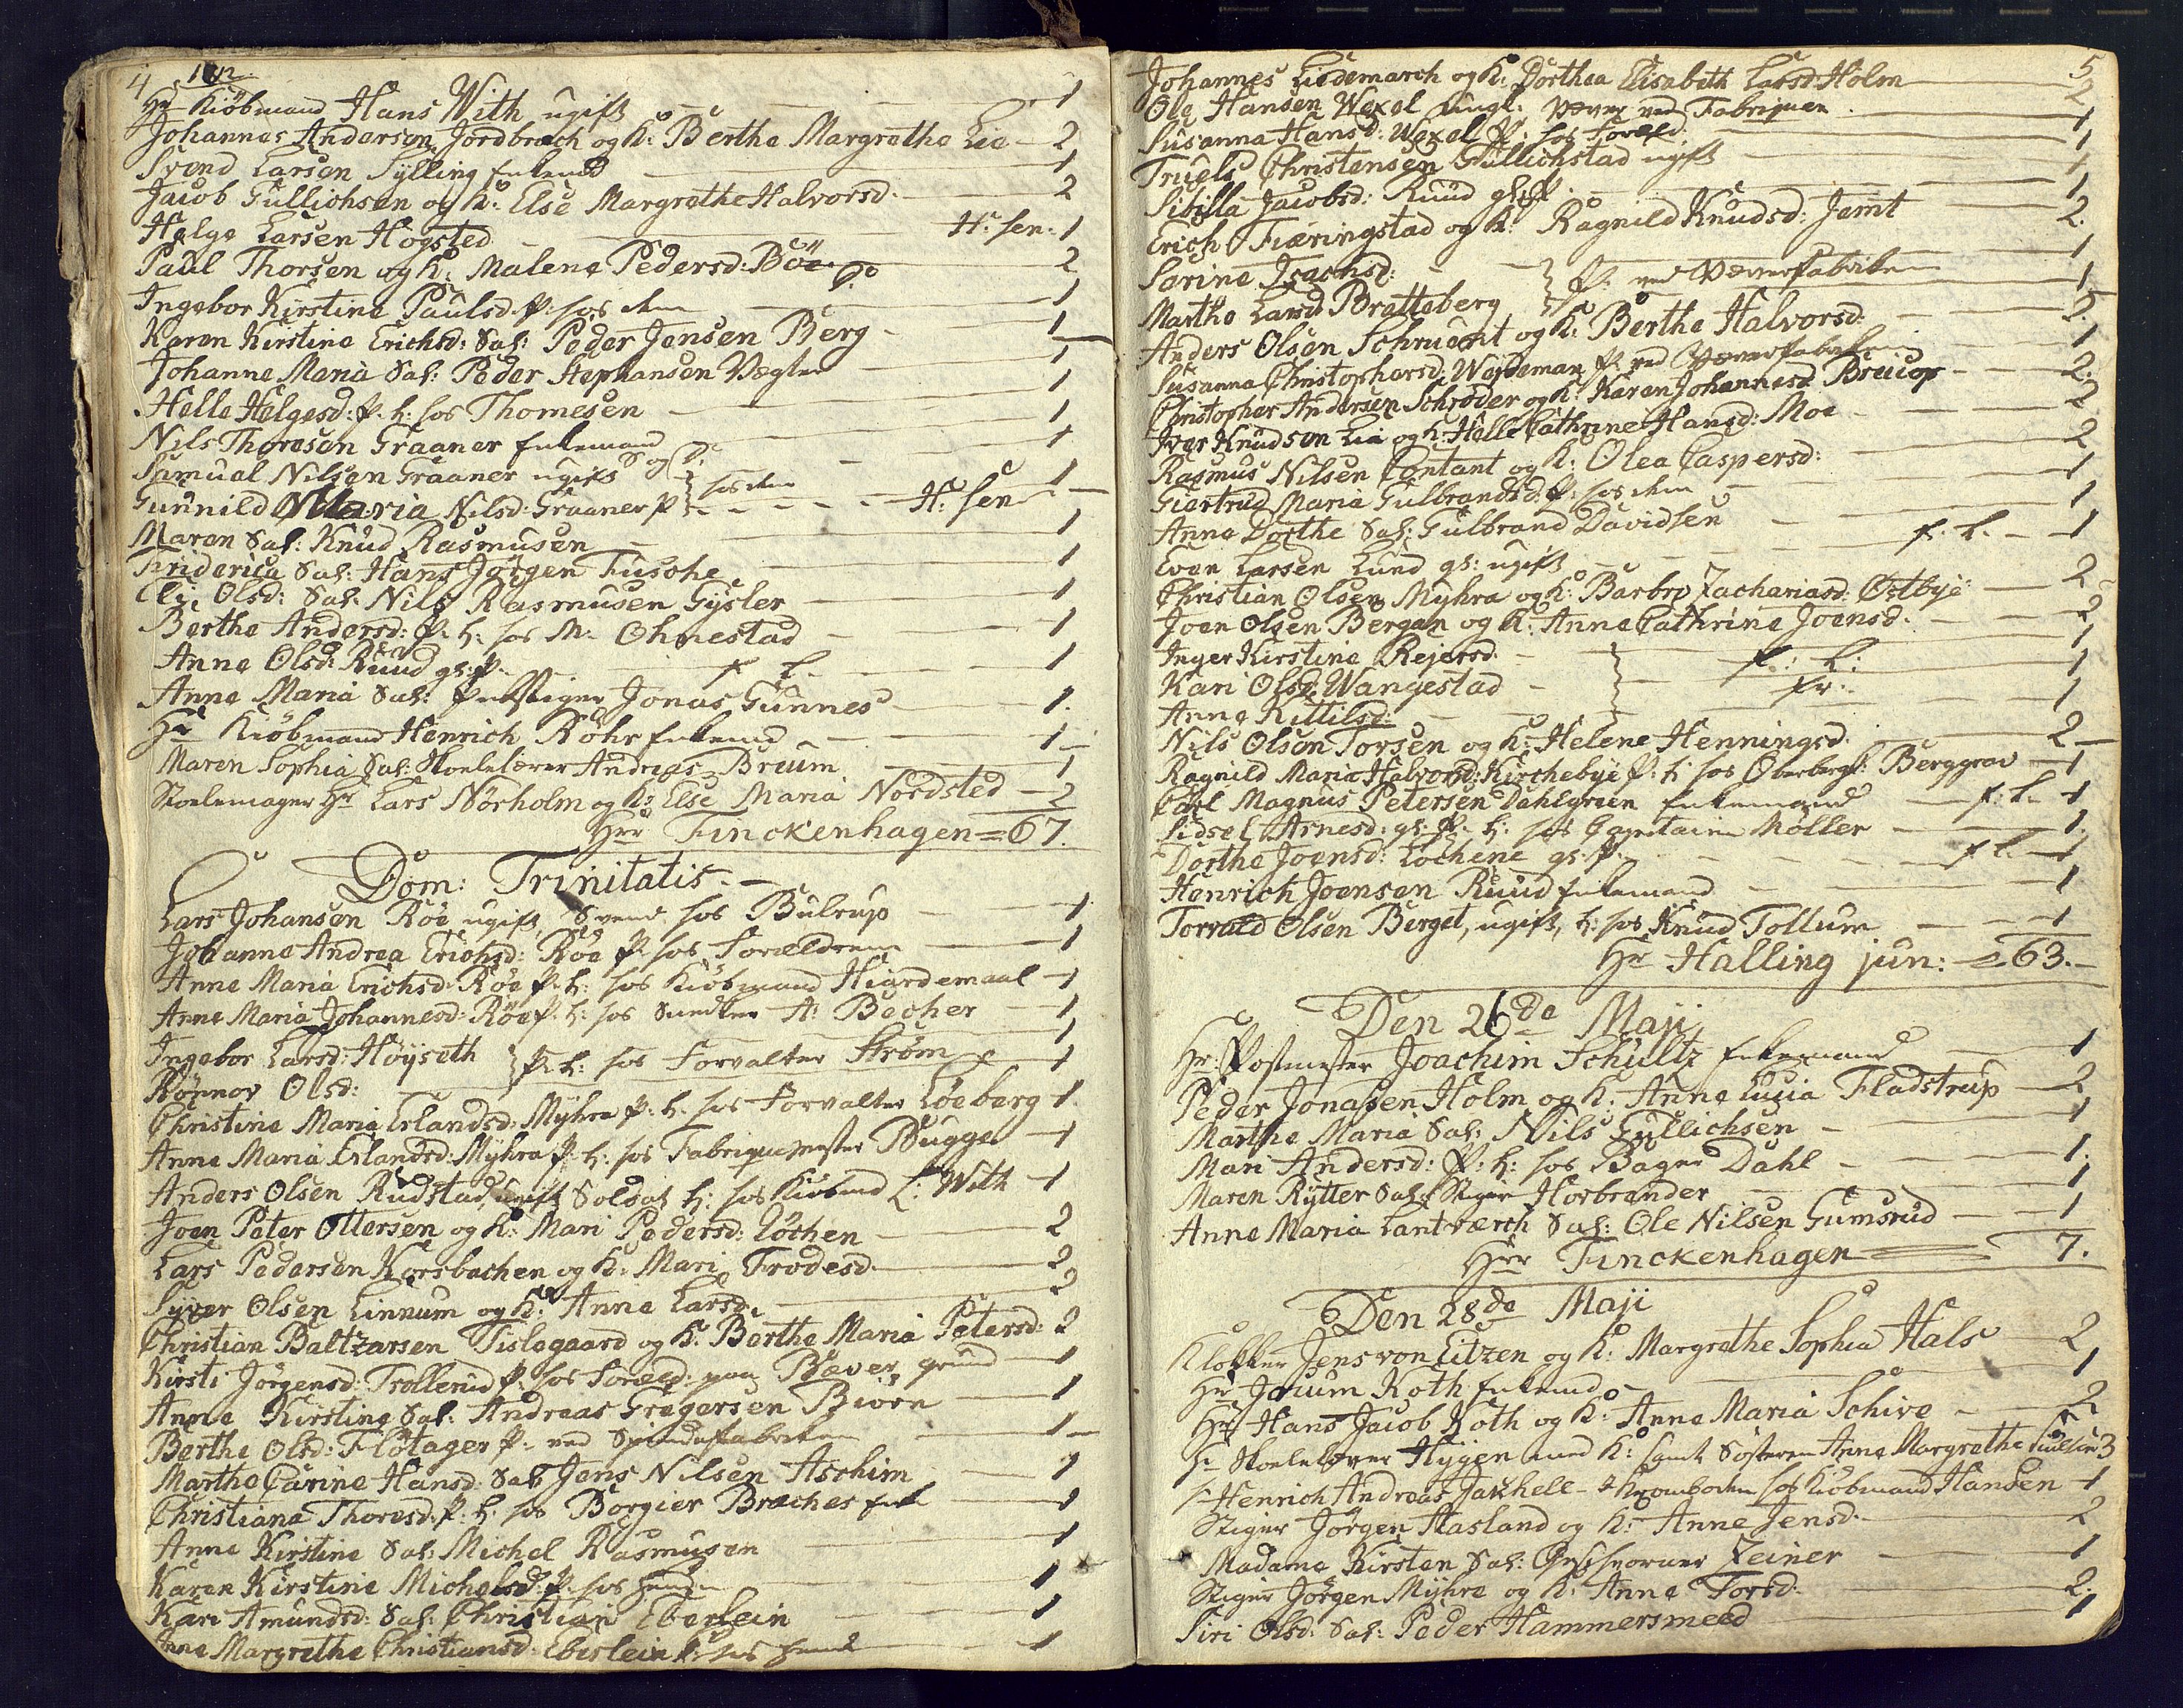 4 1812
Hr Kiöbmand Hans With ugift 1
Johannes Andersen Jordbræch og K: Berthe Margrethe Lie 2
Svend Larsen Sylling Enkemd 1
Jacob Gullichsen og K: Else Margrethe Halvorsd: 2
Helge Larsen Högsted H: sen: 1
Paul Thorsen og K: Malene Pedersd: Böe 2
Ingebor Kirstine Paulsd. P: hos dem 1
Karen Kirstine Erichsd: Sal: Peder Jensen Berg 1
Johanne Maria Sal: Peder Stephansen Vægter 1
Helle Helgesd: P. t: hos Thomesen 1
Nils Thoresen Graaner Enkemand 1
Samuel Nilsen Graaner ugift S og D: 1
Gunnild Maria Nilsd: Graaner P hos dem H: sen 1
Maren Sal: Knud Rasmusen 1
Friderica Sal: Hans Jörgen Fusche 1
Eli Olsd: Sal: Nils Rasmusen Gysler 1
Berthe Andersd: P: t: hos M: Ohmestad 1
Anne Olsd: Ruud gl: P. f. L. 1
Anne Maria Sal: Jonas Gunnes 1.
Hr Kiöbmand Henrich Röhr Enkemd 1
Maren Sophia Sal: Skoelelærer Andreas Breum 1
Stoelemager Hr Lars Nörholm og K: Else Maria Nordsted 2
Hrr Finckenhagen = 67.
Dom: Trinitatis.
Lars Johansen Röe ugift, Svend hos Bulrup 1
Johanne Andrea Erichsd: Röe P: hos Forældrene 1
Anne Maria Erichsd: Röe P: t: hos Kiöbmand Hiardemaal 1
Anne Maria Johannesd: Röe P: t: hos Snedker A: Becher 1
Ingebor Larsd: Höyseth 1
Rönnov Olsd: P: t: hos Forvalter Ström 1
Christine Maria Erlandsd: Myhra P: t: hos Forvalter Löeberg 1
Anne Maria Erlandsd: Myhra P: t: hos Fabriquemester Bugge 1
Anders Olsen Rudstad, ugift Soldat t: hos Kiöbmd L: With 1
Joen Peter Ottersen og K: Mari Pedersd: Löchen 2
Lars Pedersen Korsbachen og K: Mari Frodesd. 2
Syver Olsen Linnum og K: Anne Larsd. 2
Christian Baltzarsen Tislegaard og K: Berthe Maria Petersd: 2
Kirsti Jörgensd: Trollerud P: hos Foræld: paa Bæver, grund 1
Anne Kirstine Sal: Andreas Gregersen Biörn 1
Berthe Olsd: Flötager P: ved 1
Marthe Carine Hansd: Sal: Jens Nilsen Aschim 1
Christiana Thoresd: P: t: hos Borgier Braches 1
Anne Kirstine Sal: Michel Rasmusen 1
Karen Kirstine Michelsd: P: hos hende 1
Kari Amundsd: Sal: Christian Eberlein 1
Anne Margrethe Christiansd: Eberlein P: hos hende 1
5
Johannes Liedemarch og K: Dorthea Elisabeth Larsd: Holm 2
Ole Hansen Wexel ungk. Væver ved Fabriquen 1
Susanna Hansd: Wexel P: hos Foræld: 1
Truels Christensen Gullichstad ugift 1
Sibilla Jacobsd: Ruud gl: P. 1
Erich Fiæringstad og K: Ragnild Knudsd: Jamt 2.
Sarine Isacnsd: 1
Marthe Larsd: Bratteberg P: ved Væverfabriken 1
Anders Olsen Schruent og K: Berthe Halvorsd: 2.
Susanna Christophersd: Wejdeman P: ved Væverfabriken 1
Christopher Andersen Schrøder og K: Karen Johannesd: Breicop 2.
Iver Knudsen Lie og K: Helle Cathrine Hansd: Moe 2
Rasmus Nilsen Contant og K: Olea Caspersd: 2
Giertrud Maria Gulbrandsd: P: hos dem 1
Anne Dorthe Sal: Gulbrand Davidsen 1
Even Larsen Lund gl: ugift f. L. 1
Christian Olsen Myhra og K: Barbro Zachariasd: Østbye 2
Joen Olsen Bergan og K: Anne Cathrine Joensd. 2
Inger Kirstine Rejersd. 1
Kari Olsd: Wangestad f: L: 1
Anne Kittilsd: fr. 1
Nils Olsen Torsen og K: Helene Henningsd: 2
Ragnild Maria Halvorsd: Kirchebye P: t: hos Oberbergh: Berggrav 1
Carl Magnus Petersen Dahlgreen Enkemand f: L. 1
Sidsel Arnesd: gl: P: t: hos Capitain Møller 1.
Dorthe Joensd: Lochene gl: P. f L. 1
Henrich Joensen Ruud Enkemand 1
Torvald Olsen Berget, ugift, t: hos Knud Tollum 1
Hr Halling jun: = 63.
Den 26de Maji
Hr: Postmester Joachim Schultz Enkemand 1
Peder Jonassen Holm og K: Anne Lucia Fladstrup 2
Marthe Maria Sal: Nils Gullichsen 1
Mari Andersd: P: t: hos Bager Dahl 1.
Maren Rytter Sal: Stiger Horbrender 1
Anne Maria Lantværch Sal: Ole Nilsen Gumsrud 1
Hrr Finckenhagen 7.
Den 28de Maji
Klokker Jens von Eitzen og K: Margrethe Sophia Hals 2
Hr Jorum Koth Enkemd 1
Hr Hans Jacob Koth og K: Anne Maria Schive 2
Hr Skoelelærer Hygen med K: samt Søsteren Anne Margrethe 3
Hr Henrich Andreas Jaxhell hos Kiöbmand Hansen 1
Stiger Jörgen Aasland og K: Anne Jensd. 2
Madame Kirsten Sal: Zeiner 1
Stiger Jörgen Myhre og K: Anne Torsd. 2.
Siri Olsd: Sal: Peder Hammersmeed 1